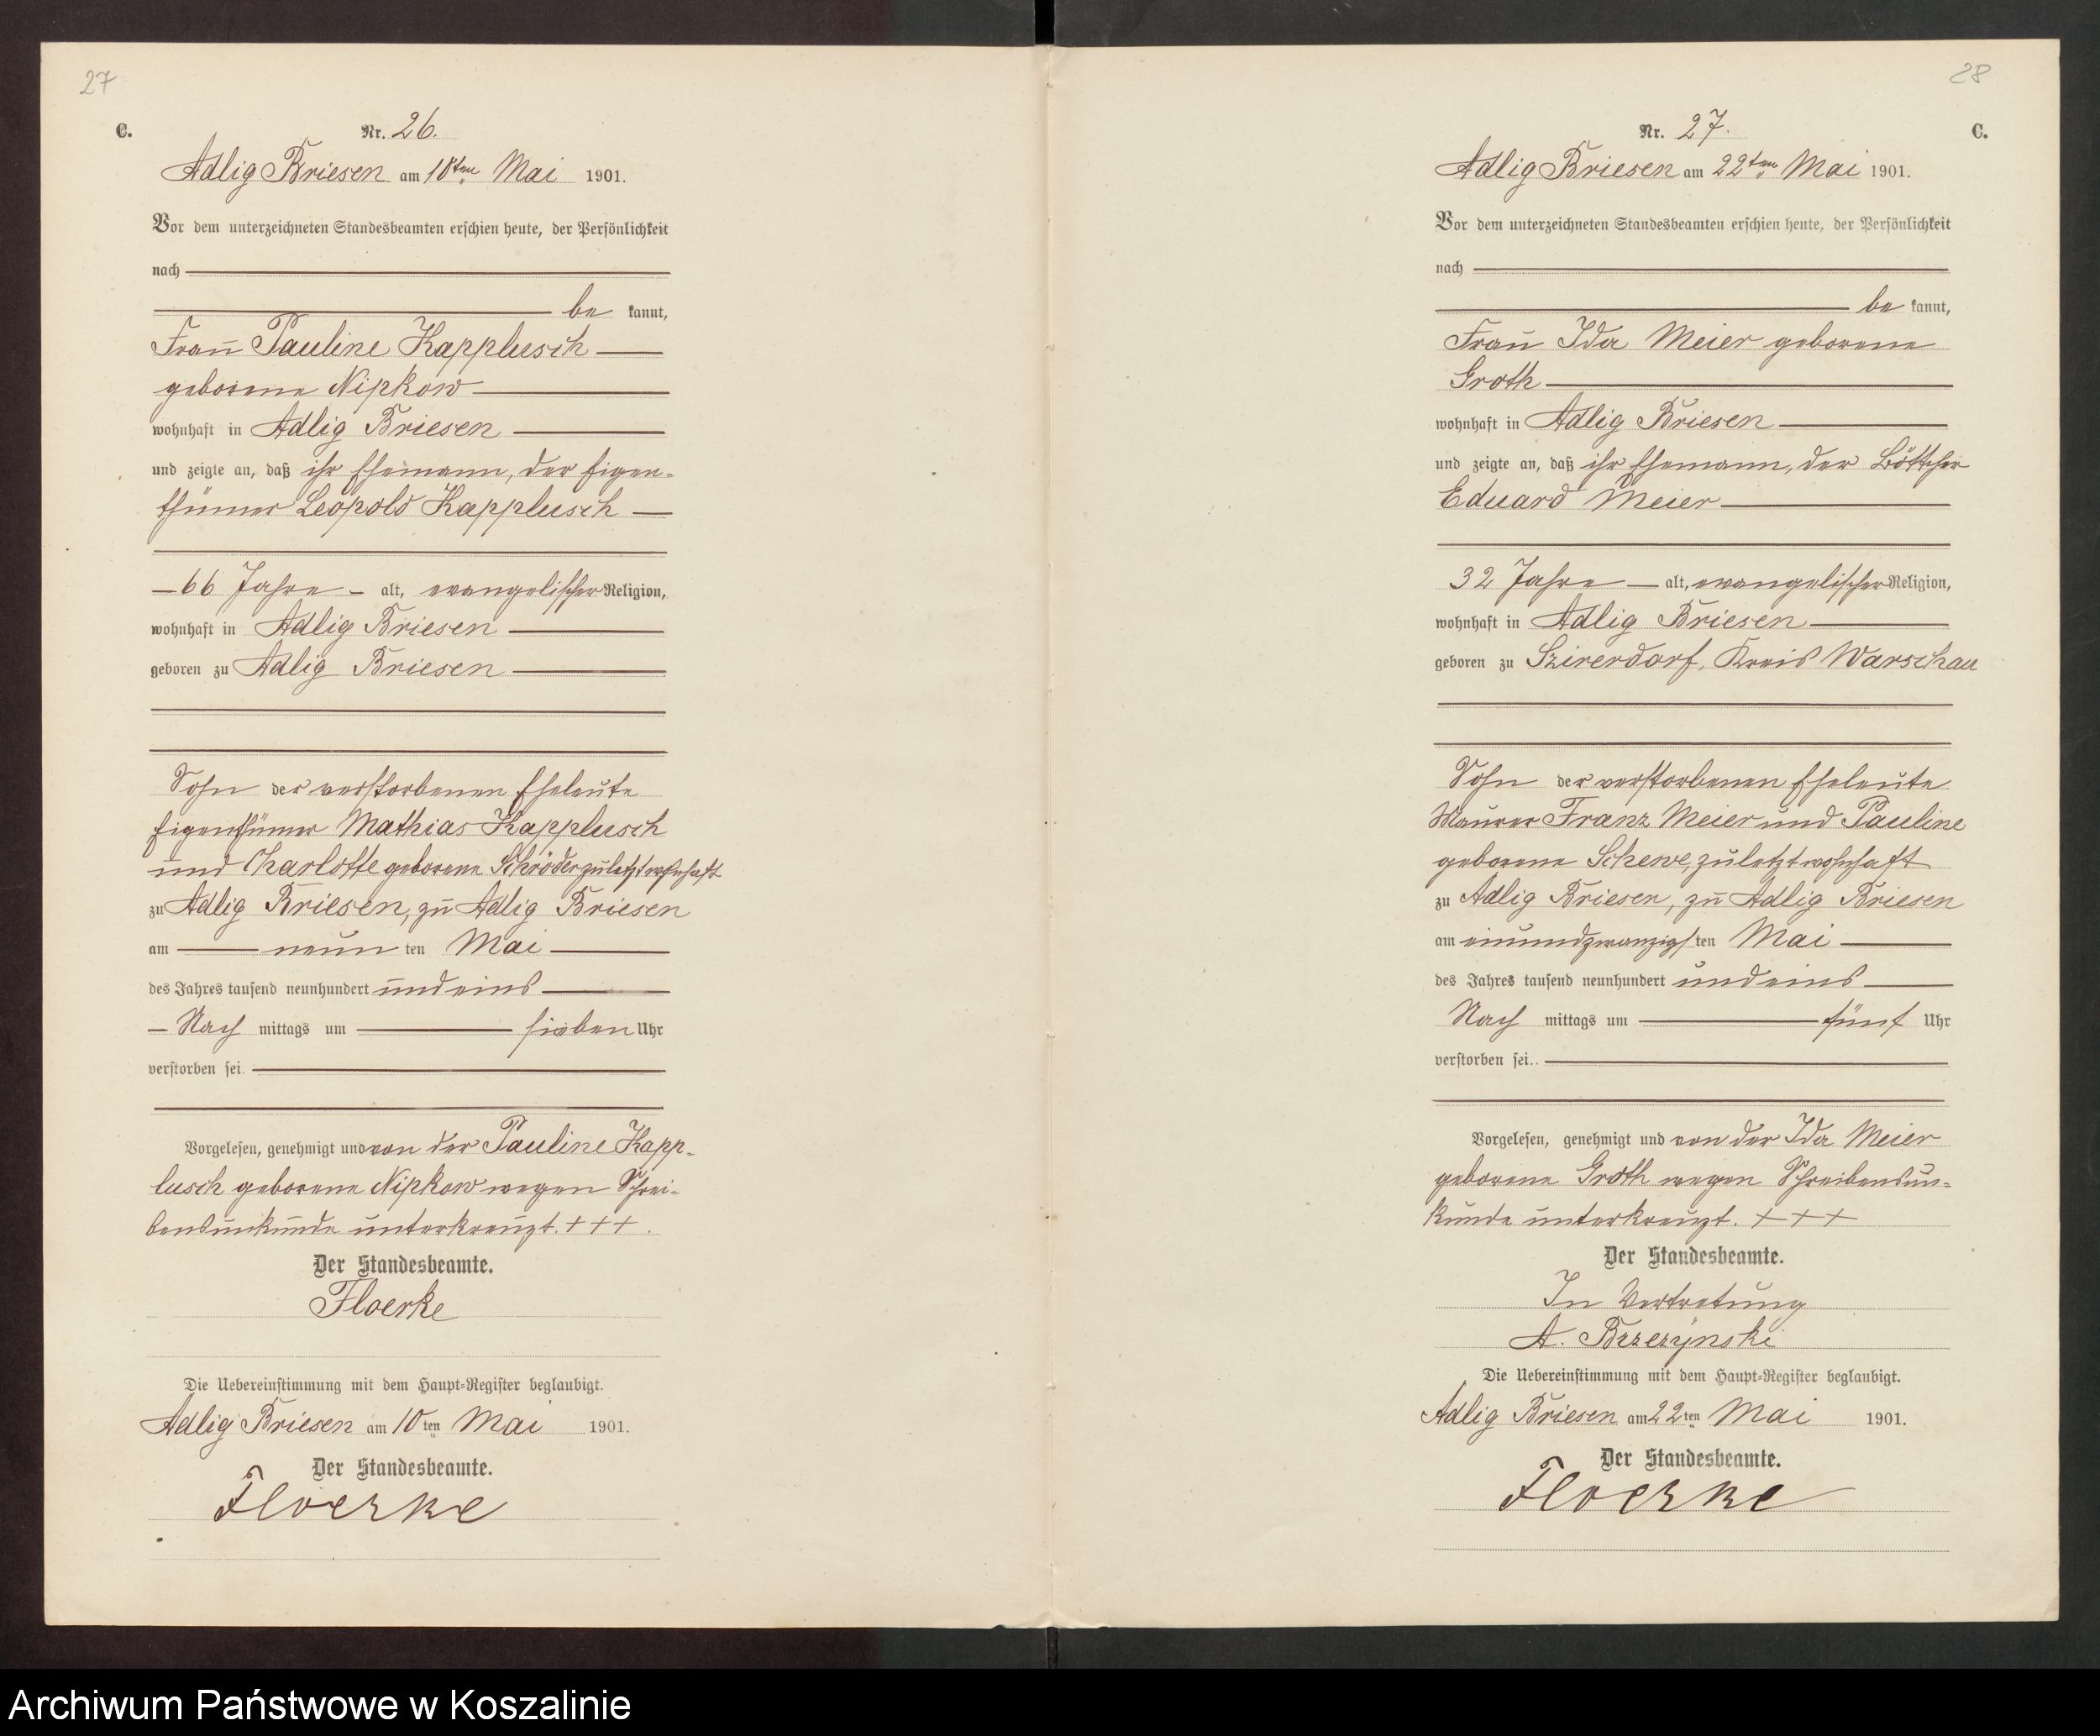 27
C.
Nr. 26.
Adlig Briesen am 10ten Mai 1901.
Vor dem unterzeichneten Standesbeamten erschien heute, der Persönlichkeit
nach
be kannt,
Frau Pauline Kapplusch
geborene Nipkow
wohnhaft in Adlig Briesen
und zeigte an, daß ihr Ehemann, der Eigen-
thümer Leopold Kapplusch
66 Jahre alt, evangelischer Religion,
wohnhaft in Adlig Briesen
geboren zu Adlig Briesen
Sohn der verstorbenen Eheleute
Eigenthümer Mathias Kapplusch
und Charlotte geborene Schröder zuletzt wohnhaft
zu Adlig Briesen, zu Adlig Briesen
am neun ten Mai
des Jahres tausend neunhundert und eins
Nach mittags um sieben Uhr
verstorben sei.
Vorgelesen, genehmigt und von der Pauline Kapp-
lusch geborene Nipkow wegen Schrei-
bensunkunde unterkreuzt. + + + .
Der Standesbeamte.
Floerke
Die Uebereinstimmung mit dem Haupt-Register beglaubigt.
Adlig Briesen am 10 ten Mai 1901.
Der Standesbeamte.
Floerke
28
C.
Nr. 27.
Adlig Briesen am 22ten Mai 1901.
Vor dem unterzeichneten Standesbeamten erschien heute, der Persönlichkeit
nach
be kannt,
Frau Ida Meier geborene
Groth
wohnhaft in Adlig Briesen
und zeigte an, daß ihr Ehemann, der Böttcher
Eduard Meier
32 Jahre alt, evangelischer Religion,
wohnhaft in Adlig Briesen
geboren zu Szirerdorf, Kreis Warschau
Sohn der verstorbenen Eheleute
Maurer Franz Meier und Pauline
geborene Schewe, zuletzt wohnhaft
zu Adlig Briesen, zu Adlig Briesen
am einundzwanzigsten Mai
des Jahres tausend neunhundert und eins
Nach mittags um fünf Uhr
verstorben sei.
Vorgelesen, genehmigt und von der Ida Meier
geborene Groth wegen Schreibensun-
kunde unterkreuzt. + + +
Der Standesbeamte.
In Vertretung
A. Brzezynski
Die Uebereinstimmung mit dem Haupt-Register beglaubigt.
Adlig Briesen am 22 ten Mai 1901.
Der Standesbeamte.
Floerke
Archiwum Państwowe w Koszalinie